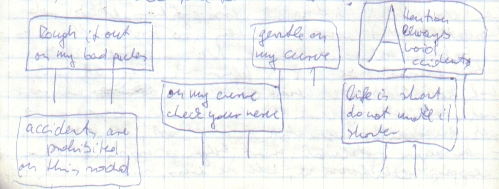 Rough it out
on my bad patches
gentle on
my curve
Attention
Always
Avoid
Accidents
on my curve
check your nerve
life is short
do not make it
shorter
accidents are
prohibited
on this road